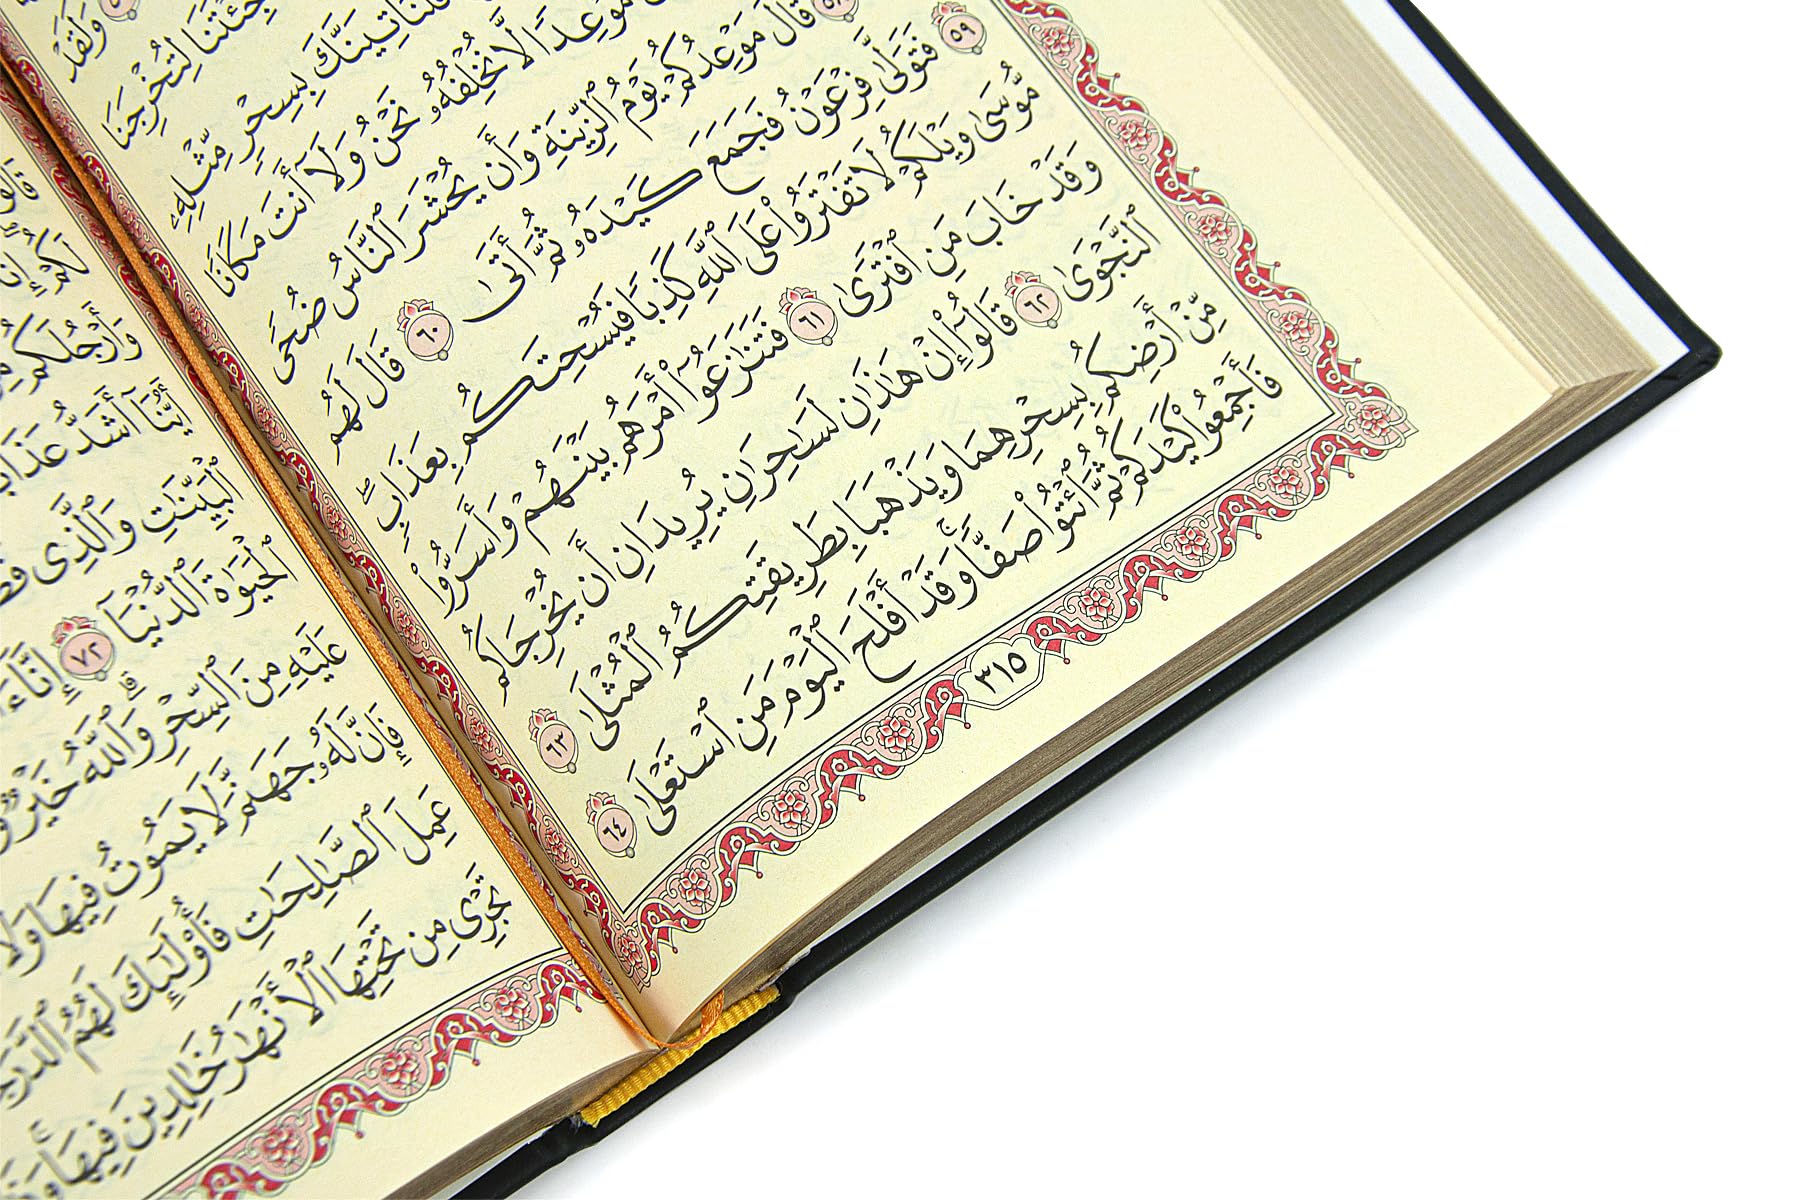 وَلَقَدْ
جِئْتَنَا لِتُخْرِجَنَا
فَلَنَأْتِيَنَّكَ بِسِحْرٍ مِّثْلِهِۦ
مَوْعِدًا لَّا نُخْلِفُهُۥ نَحْنُ وَلَآ أَنتَ مَكَانًا
قَالَ مَوْعِدُكُمْ يَوْمُ ٱلزِّينَةِ وَأَن يُحْشَرَ ٱلنَّاسُ ضُحًى
٥٩ فَتَوَلَّىٰ فِرْعَوْنُ فَجَمَعَ كَيْدَهُۥ ثُمَّ أَتَىٰ ٦٠ قَالَ لَهُم
مُّوسَىٰ وَيْلَكُمْ لَا تَفْتَرُوا۟ عَلَى ٱللَّهِ كَذِبًا فَيُسْحِتَكُم بِعَذَابٍ ۖ
وَقَدْ خَابَ مَنِ ٱفْتَرَىٰ ٦١ فَتَنَٰزَعُوٓا۟ أَمْرَهُم بَيْنَهُمْ وَأَسَرُّوا۟
ٱلنَّجْوَىٰ ٦٢ قَالُوٓا۟ إِنْ هَٰذَٰنِ لَسَٰحِرَٰنِ يُرِيدَانِ أَن يُخْرِجَاكُم
مِّنْ أَرْضِكُم بِسِحْرِهِمَا وَيَذْهَبَا بِطَرِيقَتِكُمُ ٱلْمُثْلَىٰ ٦٣
فَأَجْمِعُوا۟ كَيْدَكُمْ ثُمَّ ٱئْتُوا۟ صَفًّا ۚ وَقَدْ أَفْلَحَ ٱلْيَوْمَ مَنِ ٱسْتَعْلَىٰ ٦٤
٣١٥
لَكُمْ
وَأَرْجُلَكُم
أَيُّنَآ أَشَدُّ
ٱلْبَيِّنَٰتِ وَٱلَّذِى
ٱلْحَيَوٰةَ ٱلدُّنْيَآ ٧٢ إِنَّآ
عَلَيْهِ مِنَ ٱلسِّحْرِ ۗ وَٱللَّهُ خَيْرٌ
فَإِنَّ لَهُۥ جَهَنَّمَ لَا يَمُوتُ فِيهَا وَلَا
عَمِلَ ٱلصَّٰلِحَٰتِ فَأُو۟لَٰٓئِكَ لَهُمُ
تَجْرِى مِن تَحْتِهَا ٱلْأَنْهَٰرُ خَٰلِدِينَ فِيهَا